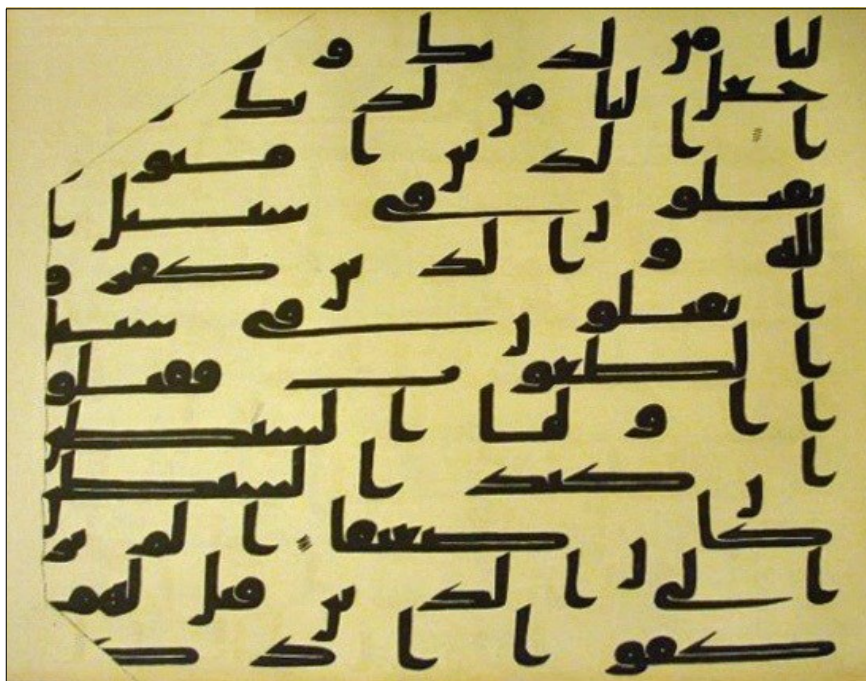 لنا من لدنك و
جعل لنا من لدنك
ا الذين امنو
يقتلون في سبيل ا
لله والذين كفرو
ا يقتلون في سبيل
الطغوت فقتلو
ا اوليا الشيطن
ان كيد الشيطن
كان ضعيفا الم تر
الى الذين قيل لهم
كفوا ايديك